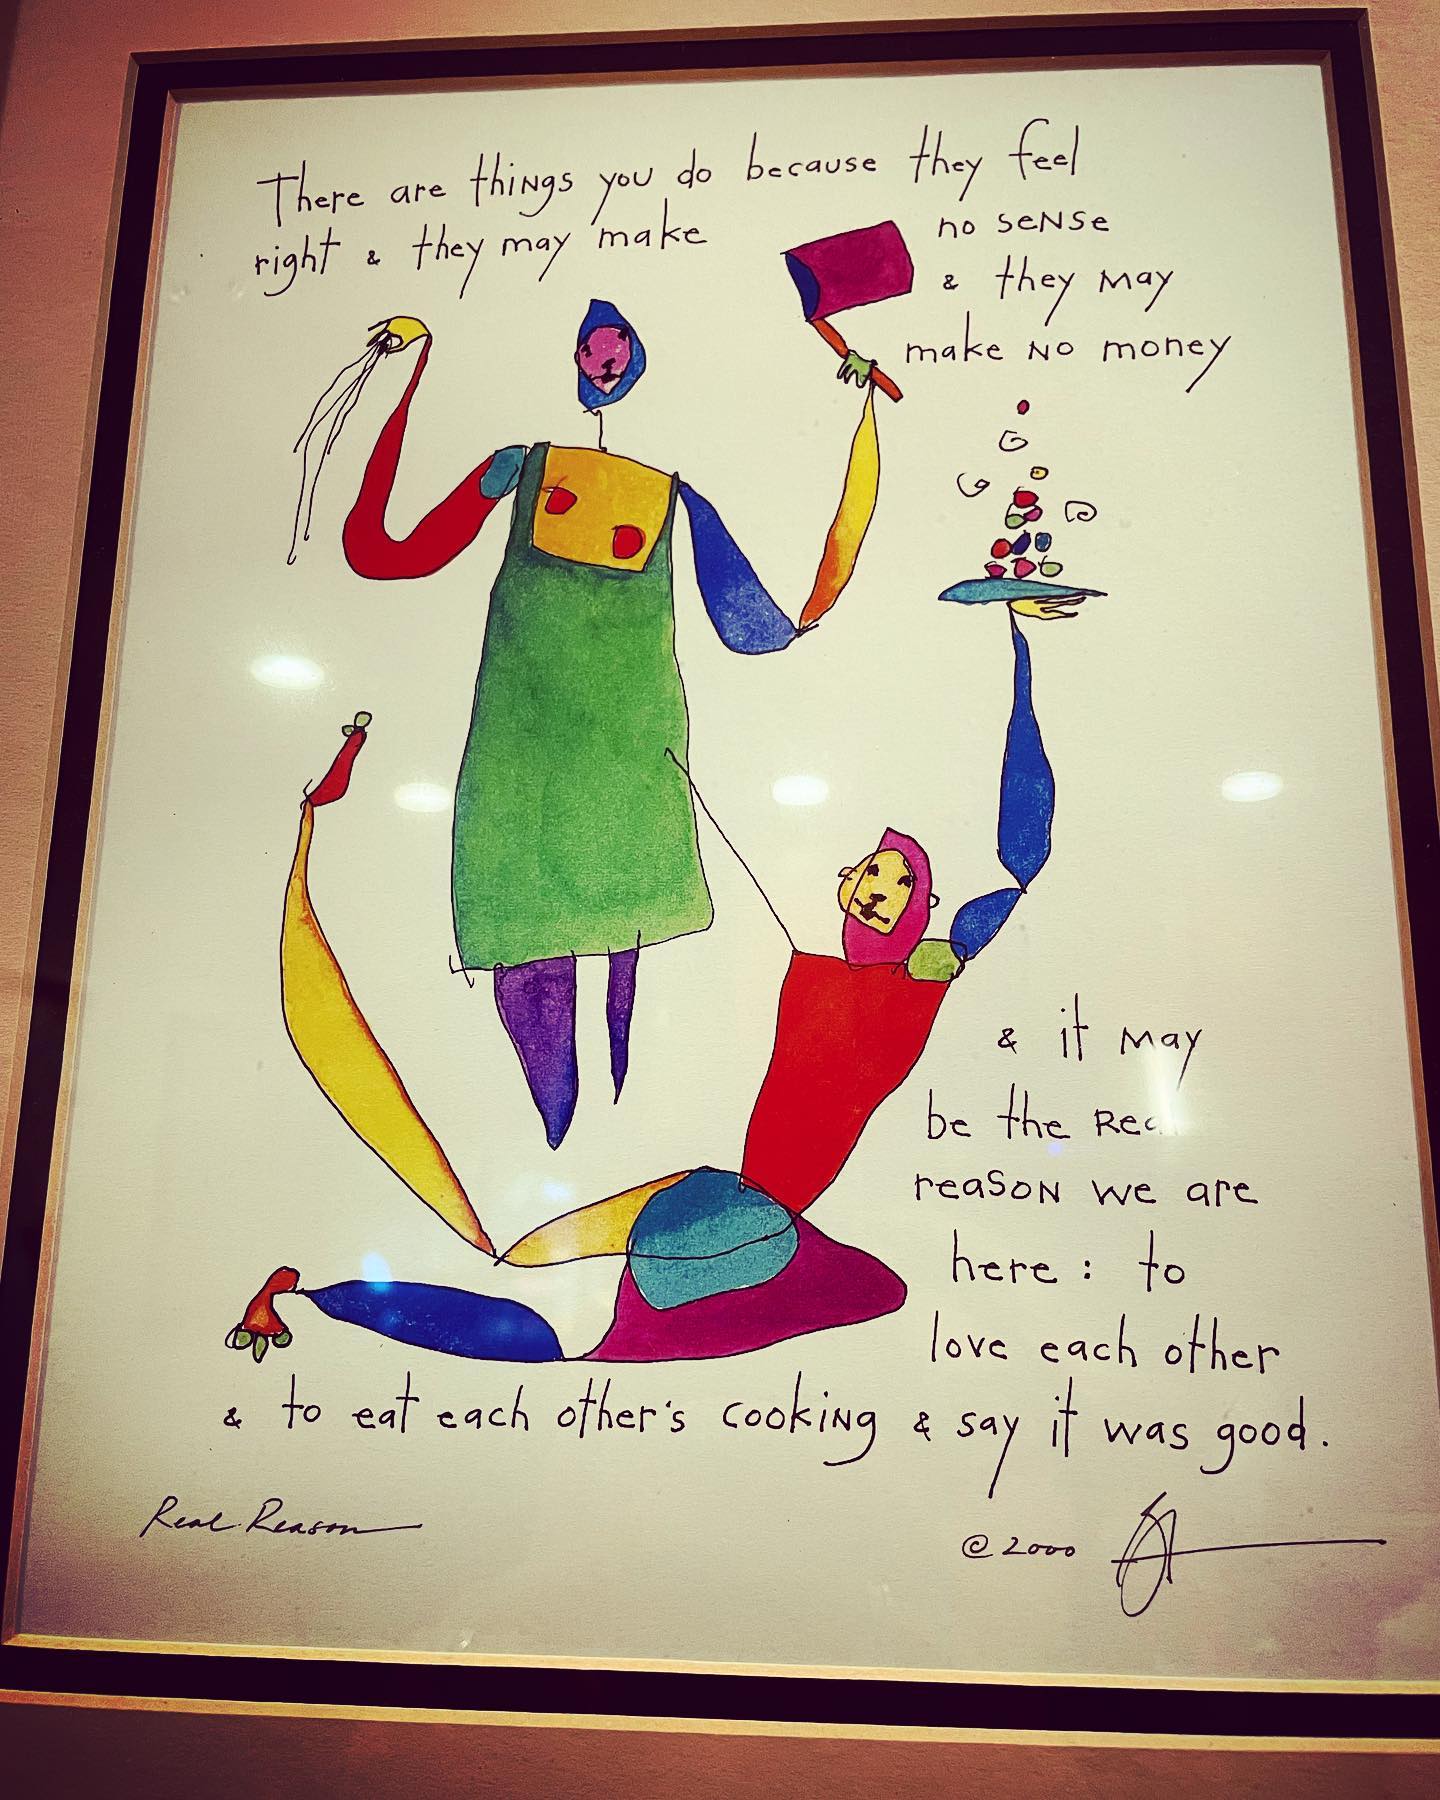 There are things you do because they feel
right & they may make no sense
& they may
make no money
& it may
be the
reason we are
here: to
love each other
& to eat each other's cooking & say it was good.
Real Reason
© 2000